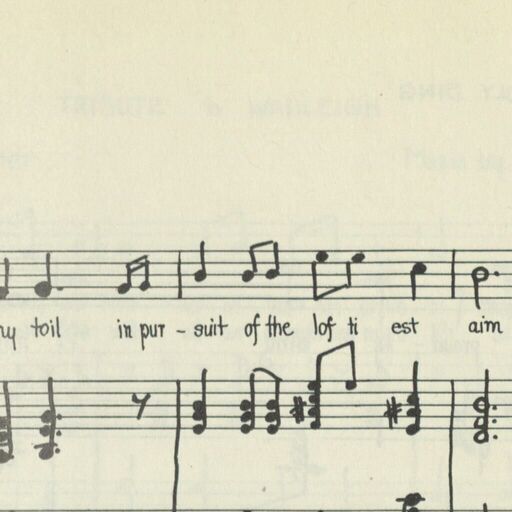 toil in pur - suit of the lof ti est aim